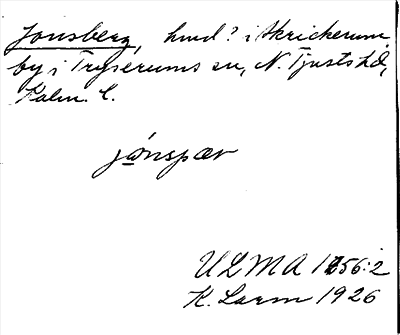 Jonsberg, hmd? i Skrickerum
by i Tryserums sn, N. Tjusts hd,
Kalm. l.
jónspær
ULMA 1856:2
K. Larm 1926